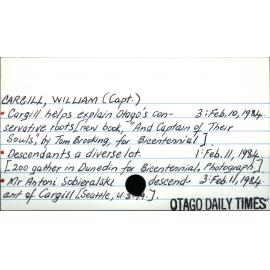 CARGILL, WILLIAM (Capt.)
• Cargill helps explain Otago's con- 3:Feb.10,1984
servative roots[new book, "And Captain of Their
Souls", by Tom Brooking, for Bicentennial]
• Descendants a diverse lot 1:Feb.11,1984
[200 gather in Dunedin for Bicentennial. Photograph]
• Mr Antoni Sobieralski descend- 3:Feb.11,1984
ant of Cargill [Seattle, U.S.A.].
OTAGO DAILY TIMES